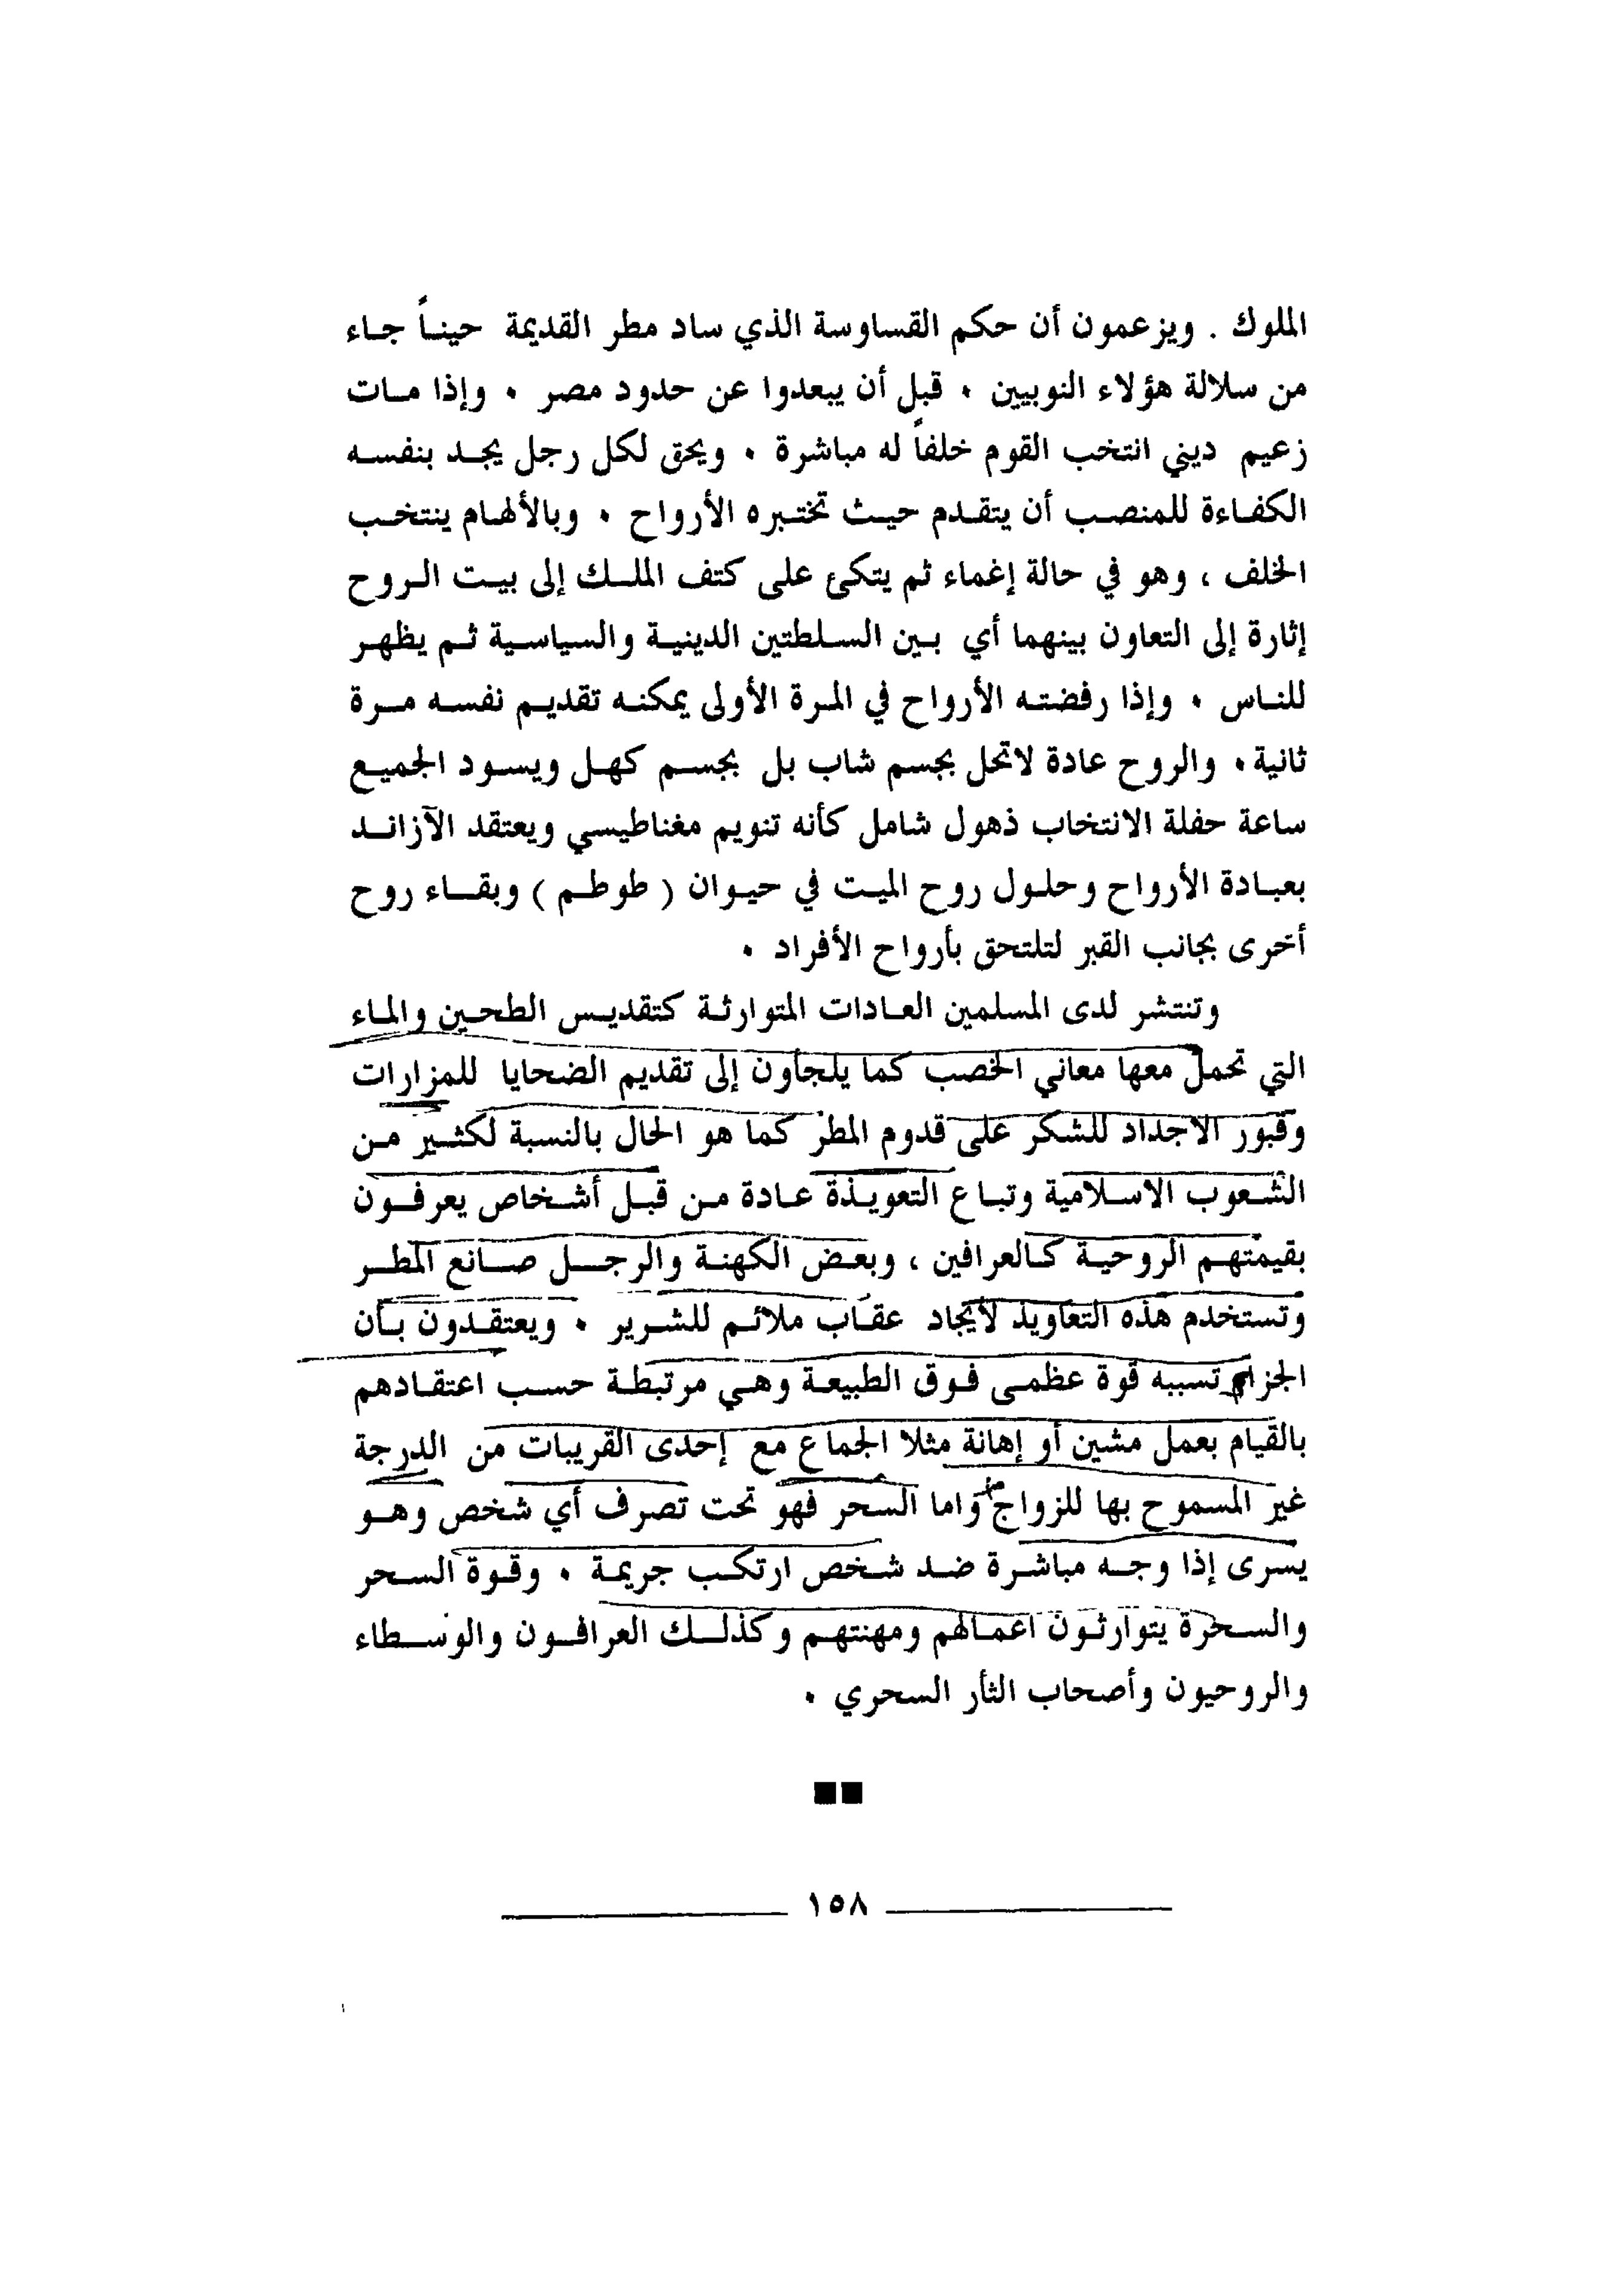 الملوك . ويزعمون أن حكم القساوسة الذي ساد مطر القديمة حيناً جاء
من سلالة هؤلاء النوبيين . قبل أن يبعدوا عن حدود مصر . وإذا مات
زعيم ديني انتخب القوم خلفاً له مباشرة . ويحق لكل رجل يجد بنفسه
الكفاءة للمنصب أن يتقدم حيث تختبره الأرواح . وبالألهام ينتخب
الخلف ، وهو في حالة إغماء ثم يتكئ على كتف الملك إلى بيت الروح
إثارة إلى التعاون بينهما أي بين السلطتين الدينية والسياسية ثم يظهر
للناس . وإذا رفضته الأرواح في المرة الأولى يمكنه تقديم نفسه مرة
ثانية . والروح عادة لاتحل بجسم شاب بل بجسم كهل ويسود الجميع
ساعة حفلة الانتخاب ذهول شامل كأنه تنويم مغناطيسي ويعتقد الآزاند
بعبادة الأرواح وحلول روح الميت في حيوان ( طوطم ) وبقاء روح
أخرى بجانب القبر لتلتحق بأرواح الأفراد .
وتنتشر لدى المسلمين العادات المتوارثة كتقديس الطحين والماء
التي تحمل معها معاني الخصب كما يلجأون إلى تقديم الضحايا للمزارات
وقبور الاجداد للشكر على قدوم المطر كما هو الحال بالنسبة لكثير من
الشعوب الاسلامية وتباع التعويذة عادة من قبل أشخاص يعرفون
بقيمتهم الروحية كالعرافين ، وبعض الكهنة والرجل صانع المطر
وتستخدم هذه التعاويذ لأيجاد عقاب ملائم للشرير . ويعتقدون بأن
الجزام تسببه قوة عظمى فوق الطبيعة وهي مرتبطة حسب اعتقادهم
بالقيام بعمل مشين أو إهانة مثلا الجماع مع إحدى القريبات من الدرجة
غير المسموح بها للزواج واما السحر فهو تحت تصرف أي شخص وهو
يسرى إذا وجه مباشرة ضد شخص ارتكب جريمة . وقوة السحر
والسحرة يتوارثون اعمالهم ومهنتهم وكذلك العرافون والوسطاء
والروحيون وأصحاب الثأر السحري .
١٥٨